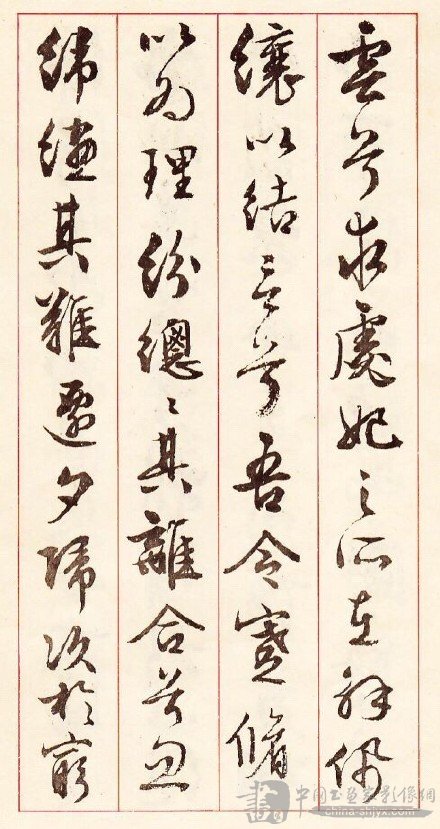 雲兮求虙妃之所在解佩
纕以結言兮吾令蹇脩
以為理紛總〻其離合兮忽
緯繣其難遷夕歸次於窮
www.china-shjyx.com